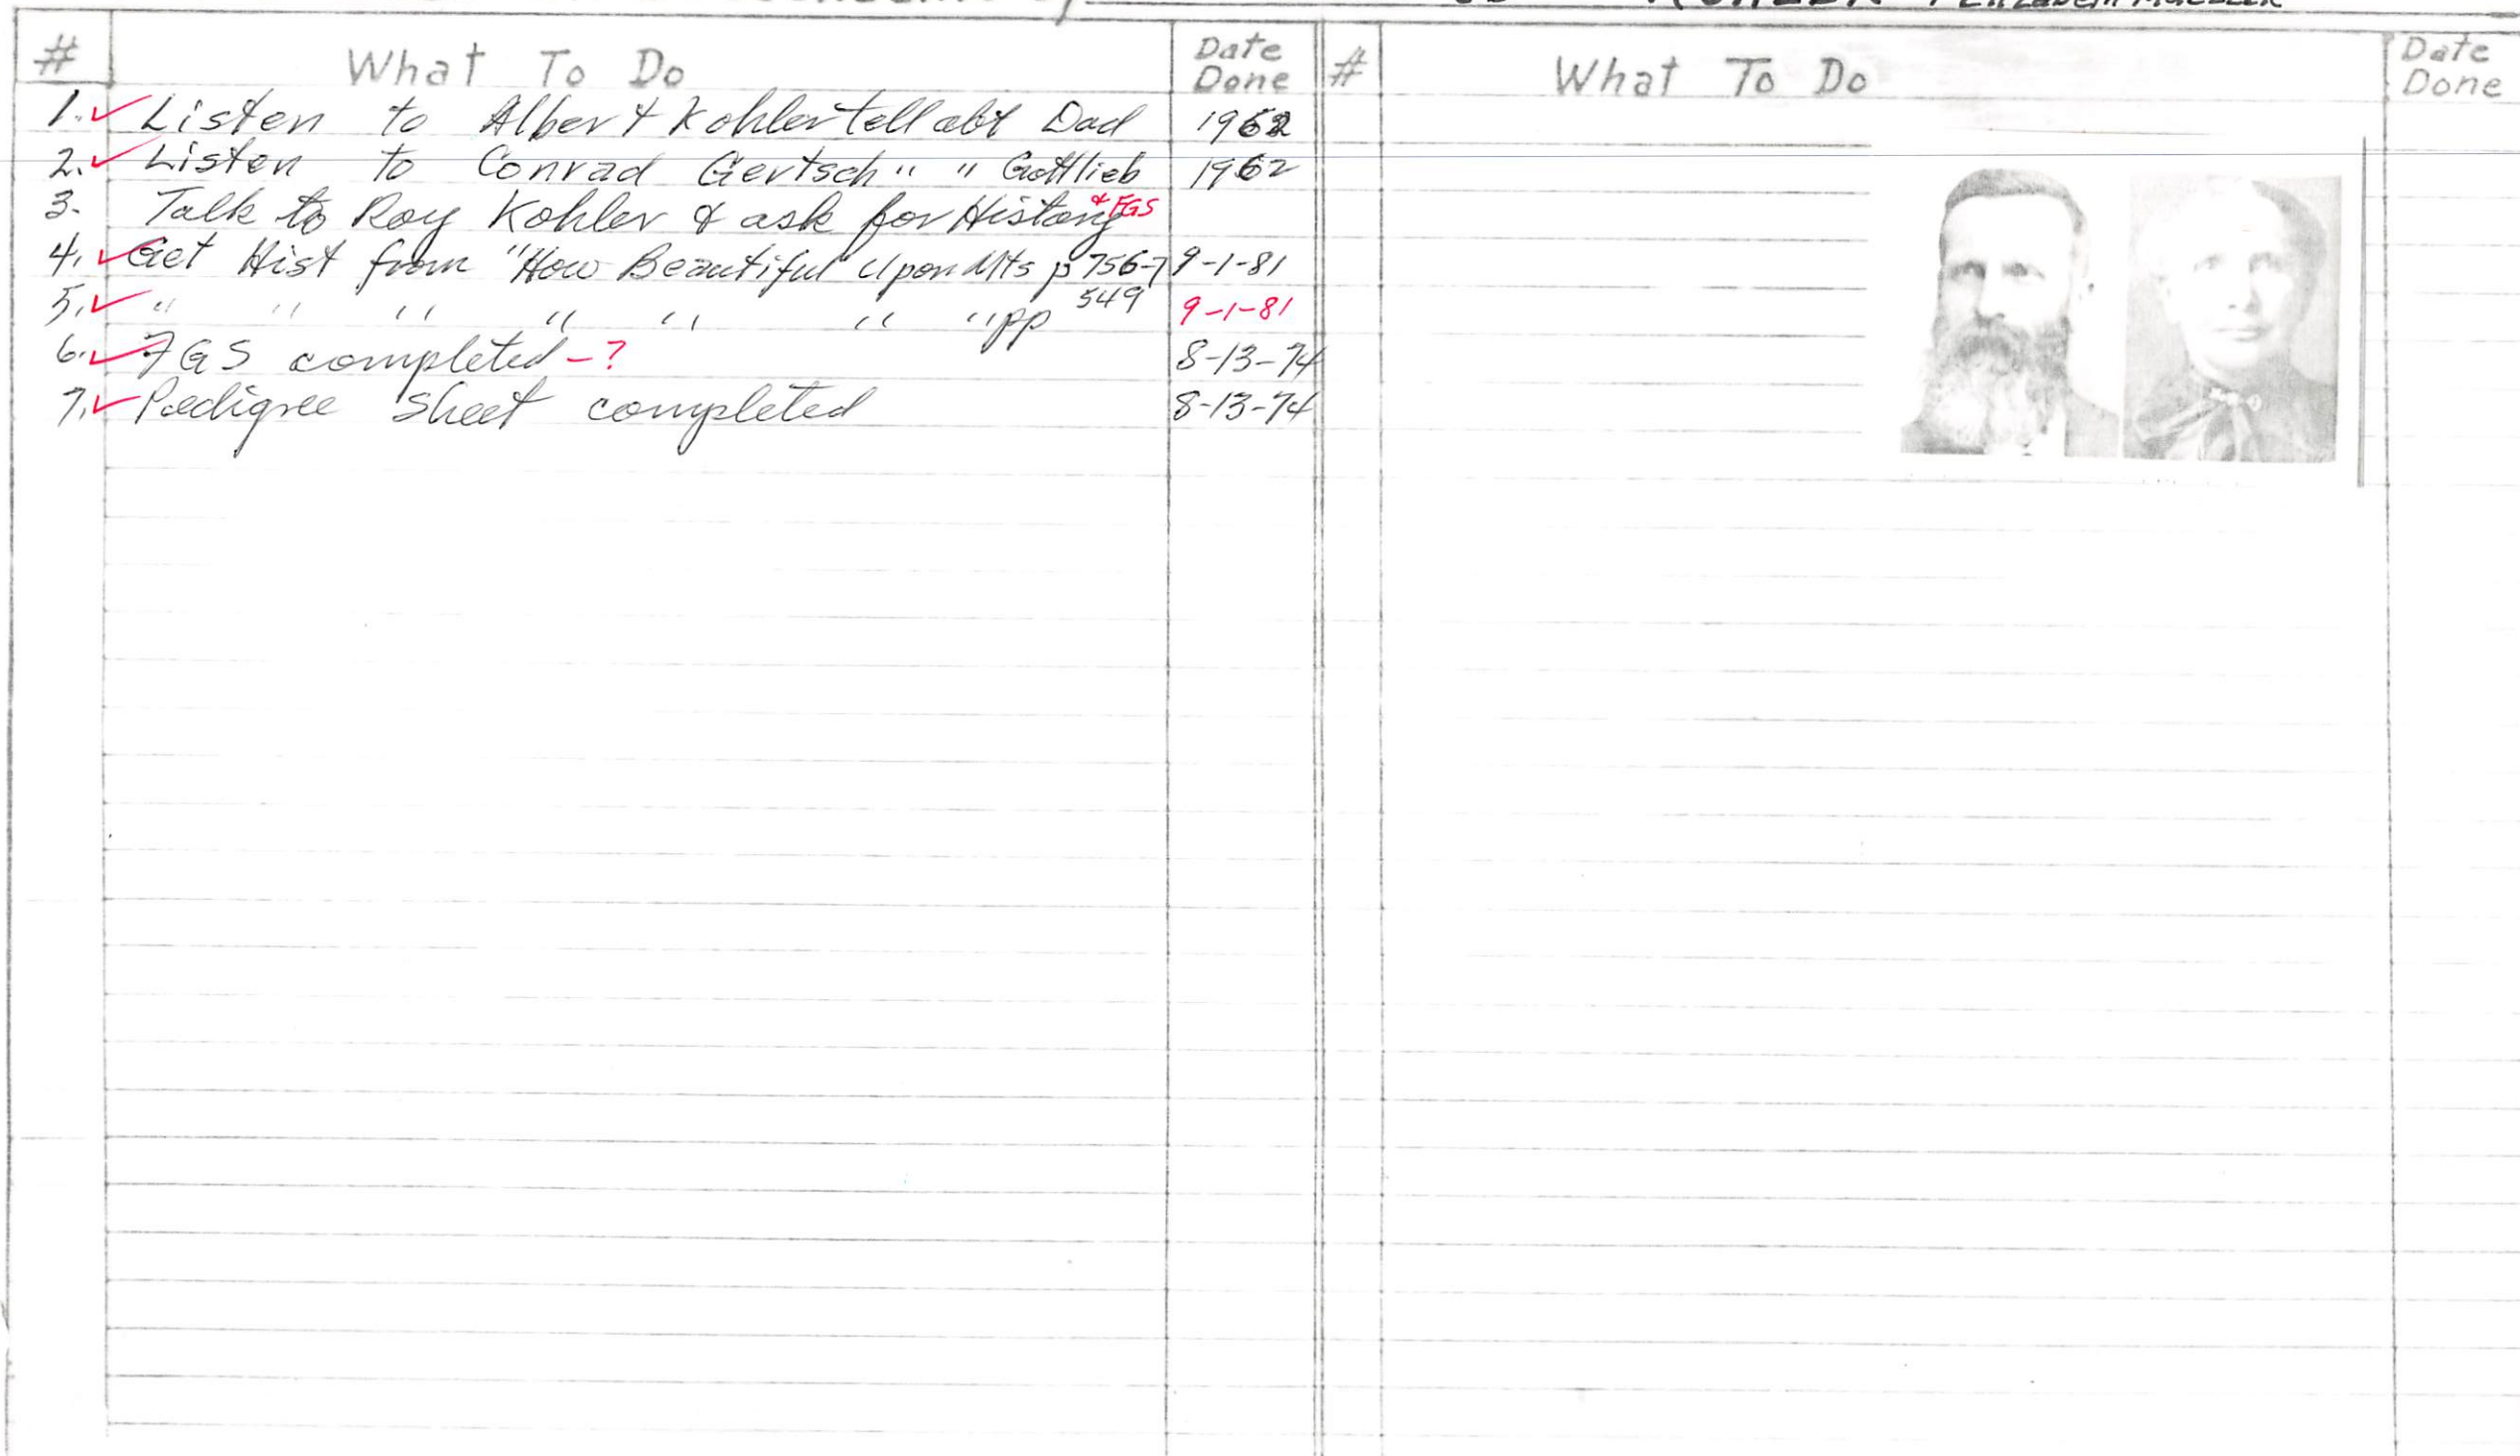 KOHLER + Elizabeth MUELLER
# What To Do Date Done # What To Do Date Done
1. ✓ Listen to Albert Kohler tell abt Dad 1962
2. ✓ Listen to Conrad Gertsch " " Gottlieb 1962
3. Talk to Roy Kohler & ask for History & FGS
4. ✓ Get Hist from "How Beautiful Upon Mts p 756-7 9-1-81
5. ✓ " " " " " " " pp 549 9-1-81
6. ✓ FGS completed - ? 8-13-74
7. ✓ Pedigree Sheet completed 8-13-74